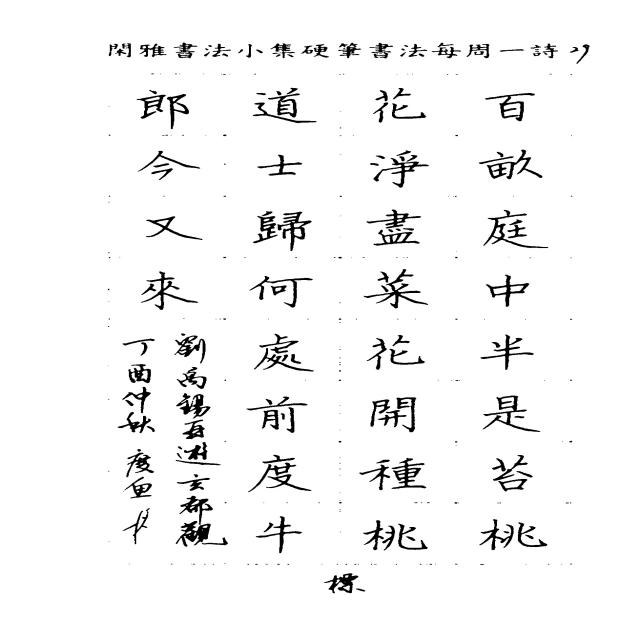 閑雅書法小集硬筆書法每周一詩 29
百畝庭中半是苔桃
花淨盡菜花開種桃
道士歸何處前度牛
郎今又來
劉禹錫再遊玄都觀
丁酉仲秋 度鱼